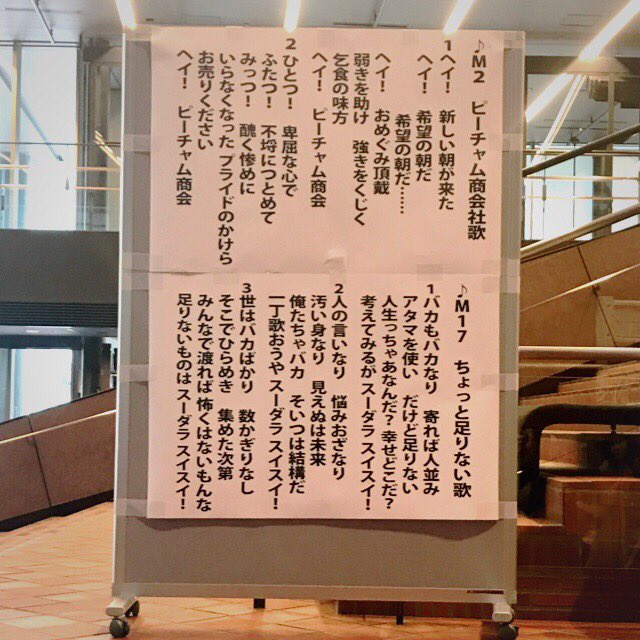 ♪M2 ピーチャム商会社歌
1ヘイ! 新しい朝が来た
ヘイ! 希望の朝だ
希望の朝だ……
ヘイ! おめぐみ頂戴
弱きを助け 強きをくじく
乞食の味方
ヘイ! ピーチャム商会
2ひとつ! 卑屈な心で
ふたつ! 不埒につとめて
みっつ! 醜く惨めに
いらなくなった プライドのかけら
お売りください
ヘイ! ピーチャム商会
♪M17 ちょっと足りない歌
1バカもバカなり 寄れば人並み
アタマを使い だけど足りない
人生っちゃあなんだ?幸せどこだ?
考えてみるがスーダラスイスイ!
2人の言いなり 悩みおざなり
汚い身なり 見えぬは未来
俺たちゃバカ そいつは結構だ
一丁歌おうや スーダラスイスイ!
3世はバカばかり 数かぎりなし
そこでひらめき 集めた次第
みんなで渡れば 怖くはないもんな
足りないものは スーダラ スイスイ!